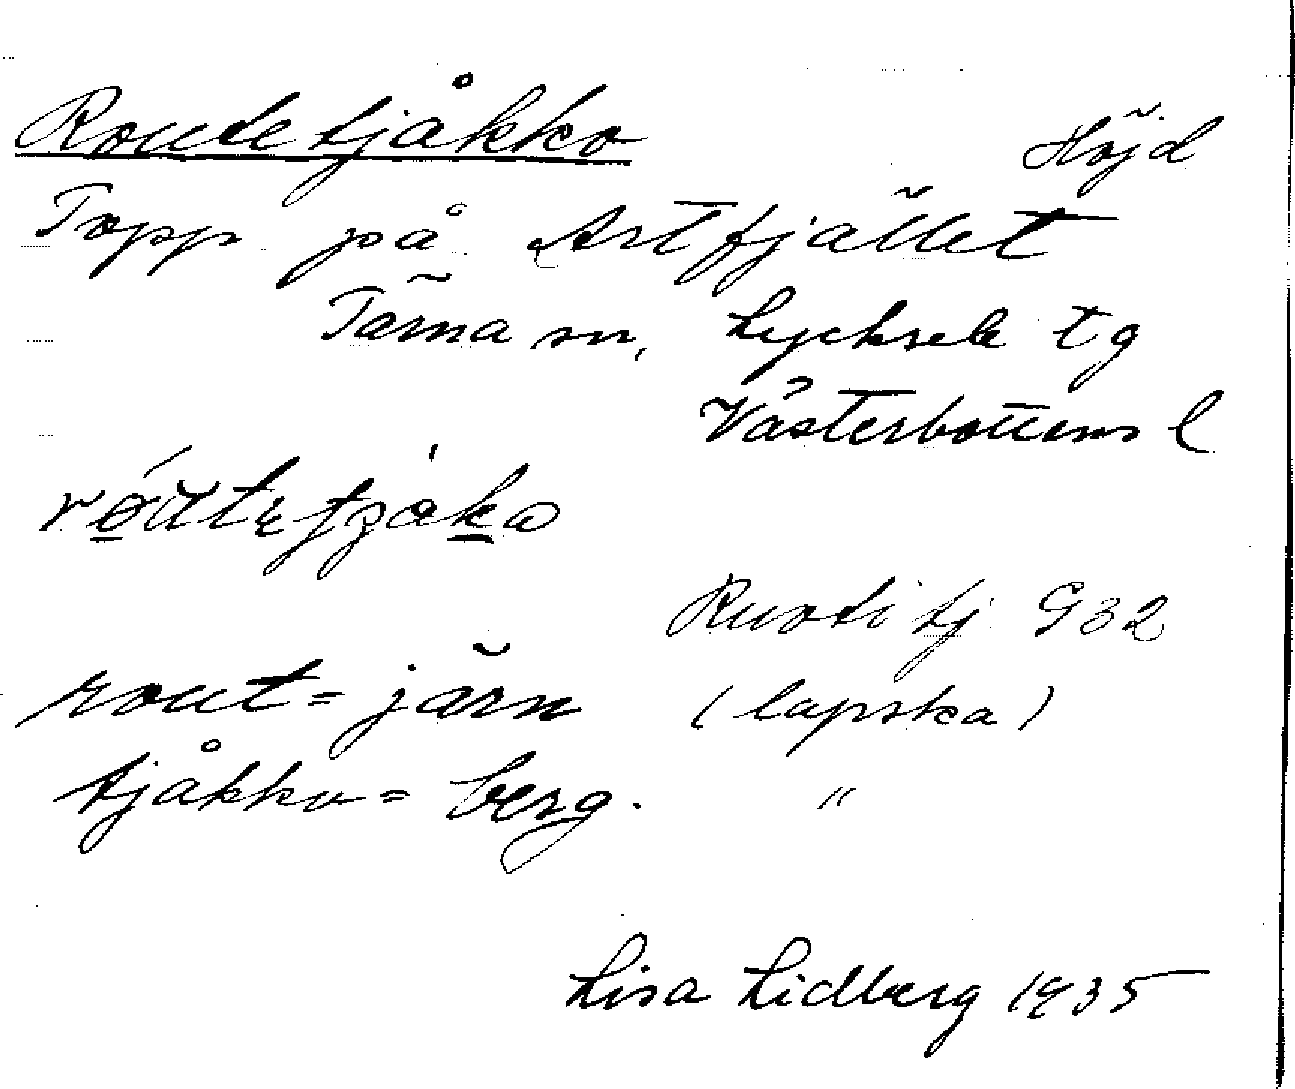 Routetjåkko Höjd
Topp på Artfjället
Tärna sn, Lycksele tg
Västerbottens l
Ruoti tj 932
rout = järn (lapska)
tjåkko = berg. "
Lisa Lidberg 1935